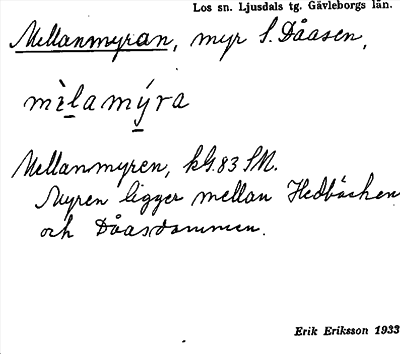 Los sn. Ljusdals tg. Gävleborgs län.
Mellanmyran, myr S. Dåasen,
mìlamýra
Mellanmyren, kG. 83 SM.
Myren ligger mellan Hedbäcken
och Dåasdammen.
Erik Eriksson 1933